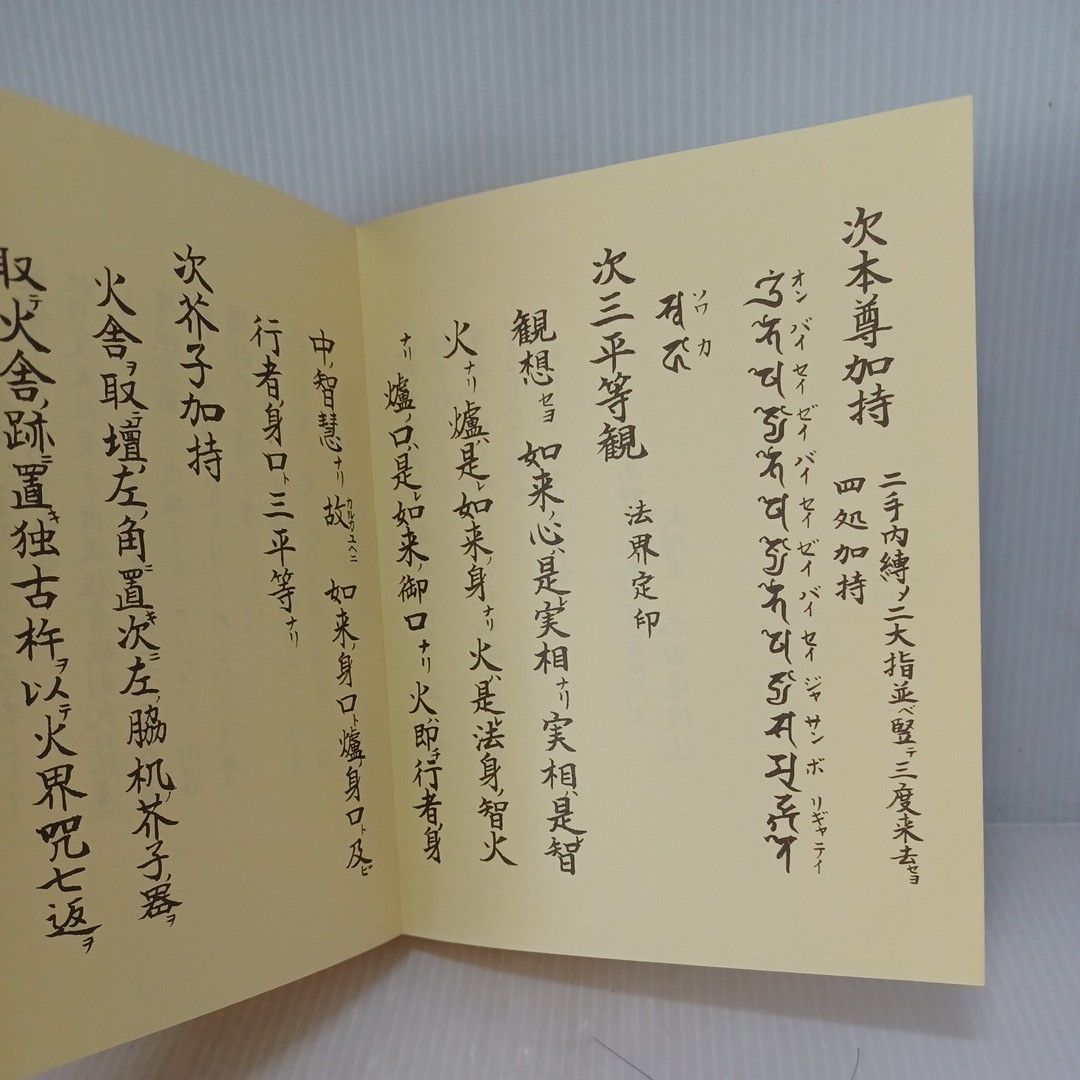 次本尊加持
二手内縛ノ二大指並ベ竪テ三度来去セヨ
四処加持
オン バイ セイ ゼイ バイ セイ ゼイ バイ セイ ジャ サン ボ リギャ テイ
ソワ カ
次三平等観 法界定印
観想セヨ 如来ノ心ハ是レ実相ナリ 実相ハ是レ智
火ナリ 爐ハ是レ如来ノ身ナリ 火ハ是レ法身ノ智火
ナリ 爐ノ口ハ是レ如来ノ御口ナリ 火ハ即チ行者ノ身
中ノ智慧ナリ 故カルガユヘニ 如来ノ身口ト爐ノ身口ト及ビ
行者ノ身口ト三平等ナリ
次芥子加持
火舎ヲ取テ壇ノ左ノ角ニ置キ次ニ左ノ脇机ノ芥子ノ器ヲ
取テ火舎ノ跡ニ置キ独古杵ヲ以テ火界咒七返ヲ